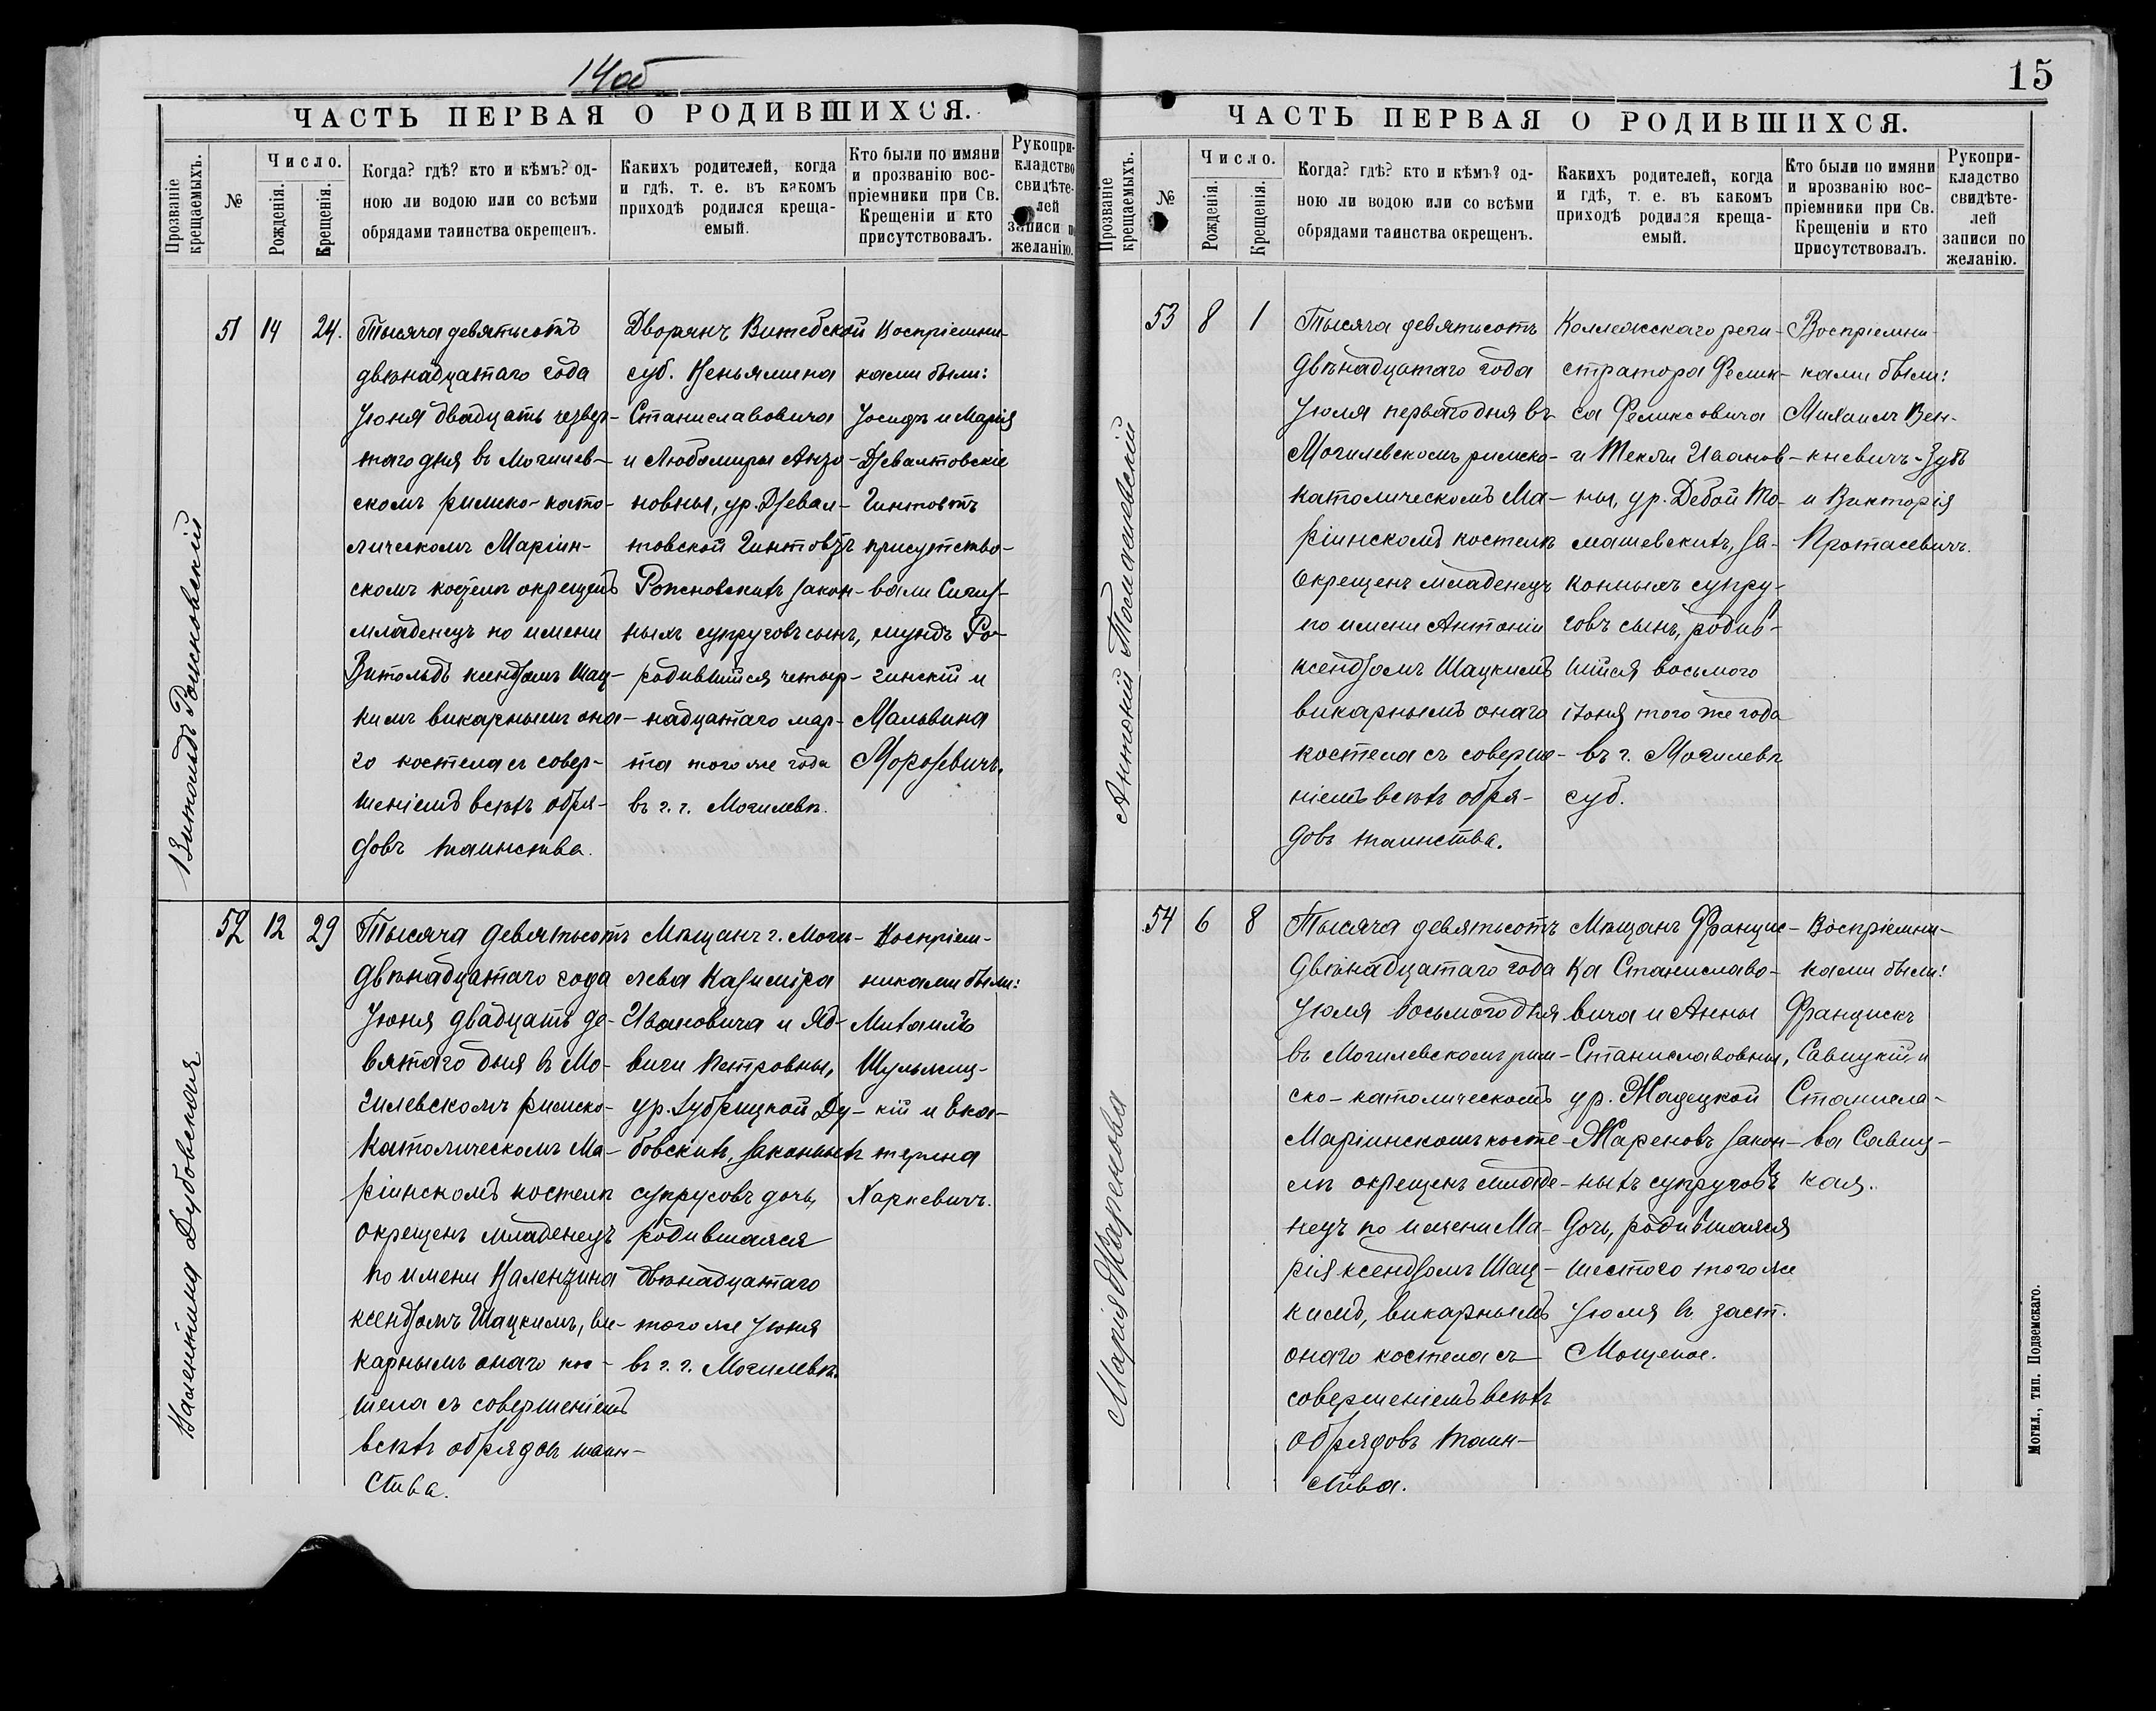 14об
ЧАСТЬ ПЕРВАЯ О РОДИВШИХСЯ.
Прозваніе крещаемыхъ.
№
Число.
Рожденія.
Крещенія.
Когда? гдѣ? кто и кѣмъ? од-
ною ли водою или со всѣми
обрядами таинства окрещенъ.
Какихъ родителей, когда
и гдѣ, т. е. въ какомъ
приходѣ родился креща-
емый.
Кто были по имяни
и прозванію вос-
пріемники при Св.
Крещеніи и кто
присутствовалъ.
Рукопри-
кладство
свидѣте-
лей
записи по
желанію.
Витольдъ
51
14
24.
Тысяча девятьсотъ
двѣнадцатаго года
Іюня двадцать четвер-
таго дня въ Могилев-
скомъ римско-като-
лическомъ Маріин-
скомъ костелѣ окрещенъ
младенецъ по имени
Витольдъ ксендзомъ Шац-
кимъ викарнымъ она-
го костела съ совер-
шеніемъ всѣхъ обря-
довъ таинства.
Дворянъ Витебской
губ. Веньямина
Станиславовича
и Любомиры Анто-
новны, ур. Дзевал-
товской Гинтовтъ
закон-
ныхъ супруговъ сынъ,
родившійся четыр-
надцатаго мар-
та того же года
въ г. г. Могилевѣ.
Воспріемни-
ками были:
Іосифъ и Марія
Дзевалтовскіе
Гинтовтъ
присутство-
вали Сигиз-
мундъ Ро-
гинскій и
Мальвина
Морозевичъ.
Валентина Дубовская
52
12
29
Тысяча девятьсотъ
двѣнадцатаго года
Іюня двадцать де-
вятаго дня въ Мо-
гилевскомъ римско-
католическомъ Ма-
ріинскомъ костелѣ
окрещенъ младенецъ
по имени Валентина
ксендзомъ Шацкимъ, ви-
карнымъ онаго кос-
тела съ совершеніемъ
всѣхъ обрядовъ таин-
ства.
Мѣщанъ г. Моги-
лева Казиміра
Ивановича и Яд-
виги Петровны,
ур. Зубрицкой Ду-
бовскихъ, законныхъ
супруговъ дочь,
родившаяся
двѣнадцатаго
того же Іюня
въ г. г. Могилевѣ.
Воспріем-
никами были:
Михаилъ
Шульжиц-
кій и Ека-
терина
Харкевичъ.
15
ЧАСТЬ ПЕРВАЯ О РОДИВШИХСЯ.
Прозваніе крещаемыхъ.
№
Число.
Рожденія.
Крещенія.
Когда? гдѣ? кто и кѣмъ? од-
ною ли водою или со всѣми
обрядами таинства окрещенъ.
Какихъ родителей, когда
и гдѣ, т. е. въ какомъ
приходѣ родился креща-
емый.
Кто были по имяни
и прозванію вос-
пріемники при Св.
Крещеніи и кто
присутствовалъ.
Рукопри-
кладство
свидѣте-
лей
записи по
желанію.
Антоній Томашевскій
53
8
1
Тысяча девятьсотъ
двѣнадцатаго года
Іюля перваго дня въ
Могилевскомъ римско-
католическомъ Ма-
ріинскомъ костелѣ
окрещенъ младенецъ
по имени Антоній
ксендзомъ Шацкимъ
викарнымъ онаго
костела съ соверше-
ніемъ всѣхъ обря-
довъ таинства.
Коллежскаго реги-
стратора Феликса
Феликсовича
и Текли Иванов-
ны, ур. Дебой То-
машевскихъ, за-
конныхъ супру-
говъ сынъ, родив-
шійся восьмого
Іюня того же года
въ г. Могилевѣ
губ.
Воспріемни-
ками были:
Михаилъ Вен-
ккевичъ-Зубъ
и Викторія
Протасевичъ.
Марія Жаренова
54
6
8
Тысяча девятьсотъ
двѣнадцатаго года
Іюля восьмого дня
въ Могилевскомъ рим-
ско-католическомъ
Маріинскомъ косте-
лѣ окрещенъ младе-
нецъ по имени Ма-
рія ксендзомъ Шац-
кимъ, викарнымъ
онаго костела съ
совершеніемъ всѣхъ
обрядовъ таин-
ства.
Мѣщанъ Францис-
ка Станиславо-
вича и Анны
Станиславовны,
ур.
Жареновъ закон-
ныхъ супруговъ
дочь, родившаяся
шестого того же
Іюля въ заст.
Воспріемни-
ками были:
Францискъ
Савицкій и
Станисла-
ва Савиц-
кая.
Могил., тип. Подземскаго.